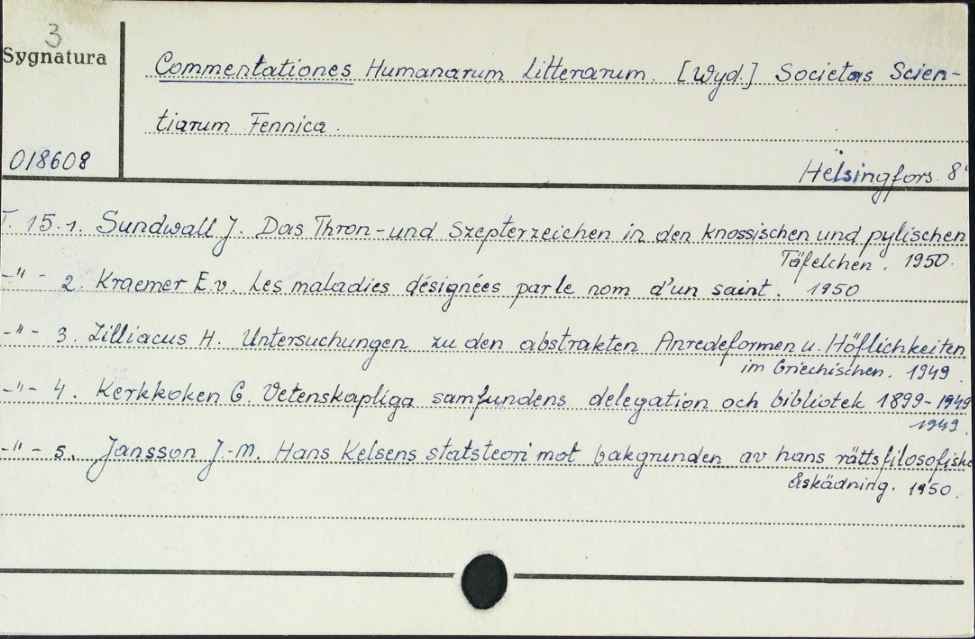 3
Sygnatura
Commentationes Humanarum Litterarum. [Wyd.] Societas Scien-
tiarum Fennica.
018608
Helsingfors. 8°
T. 15.1. Sundwall J. Das Thron-und Szepterzeichen in den knossischen und pylischen
Täfelchen. 1950.
-"- 2. Kraemer E.v. Les maladies désignées par le nom d'un saint. 1950
-"- 3. Zilliacus H. Untersuchungen zu den abstrakten Anredeformen u. Höflichkeiten
im Griechischen. 1949.
-"- 4. Kerkkoken G. Vetenskapliga samfundens delegation och bibliotek 1899-1949
1949.
-"- 5. Jansson J.-M. Hans Kelsens statsteori mot bakgrunden av hans rättsfilosofiske
åskädning. 1950.